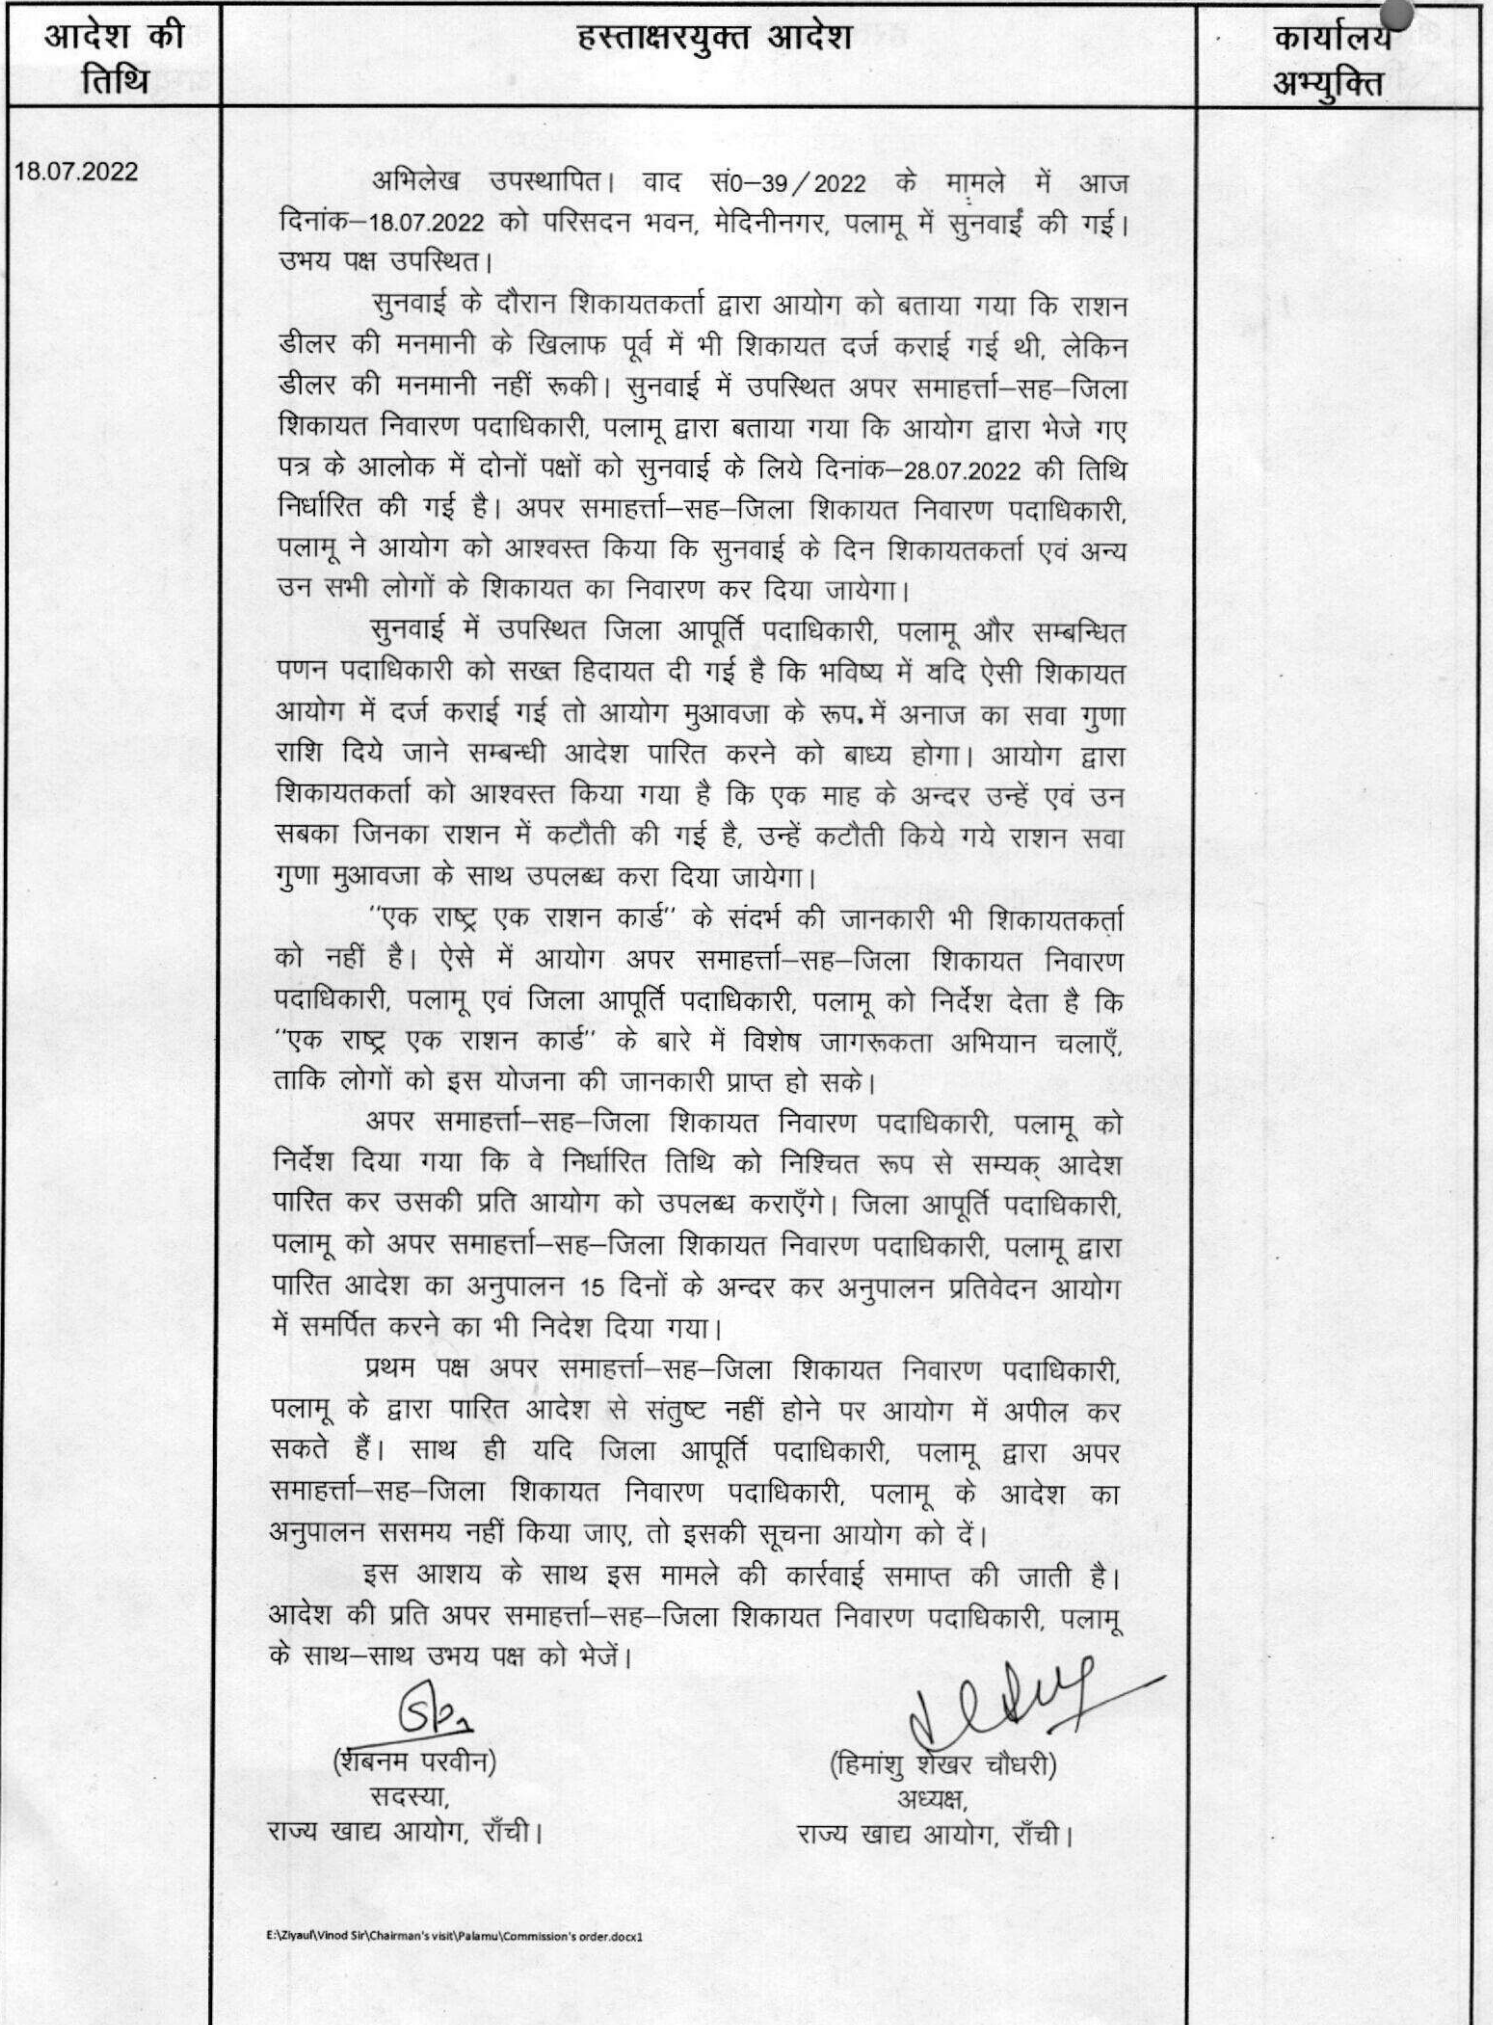 आदेश की
तिथि
हस्ताक्षरयुक्त आदेश
कार्यालय
अभ्युक्ति
18.07.2022
अभिलेख उपस्थापित। वाद सं0–39/2022 के मामले में आज
दिनांक–18.07.2022 को परिसदन भवन, मेदिनीनगर, पलामू में सुनवाई की गई।
उभय पक्ष उपस्थित।
सुनवाई के दौरान शिकायतकर्ता द्वारा आयोग को बताया गया कि राशन
डीलर की मनमानी के खिलाफ पूर्व में भी शिकायत दर्ज कराई गई थी, लेकिन
डीलर की मनमानी नहीं रूकी। सुनवाई में उपस्थित अपर समाहर्त्ता–सह–जिला
शिकायत निवारण पदाधिकारी, पलामू द्वारा बताया गया कि आयोग द्वारा भेजे गए
पत्र के आलोक में दोनों पक्षों को सुनवाई के लिये दिनांक–28.07.2022 की तिथि
निर्धारित की गई है। अपर समाहर्त्ता–सह–जिला शिकायत निवारण पदाधिकारी,
पलामू ने आयोग को आश्वस्त किया कि सुनवाई के दिन शिकायतकर्ता एवं अन्य
उन सभी लोगों के शिकायत का निवारण कर दिया जायेगा।
सुनवाई में उपस्थित जिला आपूर्ति पदाधिकारी, पलामू और सम्बन्धित
पणन पदाधिकारी को सख्त हिदायत दी गई है कि भविष्य में यदि ऐसी शिकायत
आयोग में दर्ज कराई गई तो आयोग मुआवजा के रूप में अनाज का सवा गुणा
राशि दिये जाने सम्बन्धी आदेश पारित करने को बाध्य होगा। आयोग द्वारा
शिकायतकर्ता को आश्वस्त किया गया है कि एक माह के अन्दर उन्हें एवं उन
सबका जिनका राशन में कटौती की गई है, उन्हें कटौती किये गये राशन सवा
गुणा मुआवजा के साथ उपलब्ध करा दिया जायेगा।
''एक राष्ट्र एक राशन कार्ड'' के संदर्भ की जानकारी भी शिकायतकर्ता
को नहीं है। ऐसे में आयोग अपर समाहर्त्ता–सह–जिला शिकायत निवारण
पदाधिकारी, पलामू एवं जिला आपूर्ति पदाधिकारी, पलामू को निर्देश देता है कि
''एक राष्ट्र एक राशन कार्ड'' के बारे में विशेष जागरूकता अभियान चलाएँ,
ताकि लोगों को इस योजना की जानकारी प्राप्त हो सके।
अपर समाहर्त्ता–सह–जिला शिकायत निवारण पदाधिकारी, पलामू को
निर्देश दिया गया कि वे निर्धारित तिथि को निश्चित रूप से सम्यक् आदेश
पारित कर उसकी प्रति आयोग को उपलब्ध कराएँगे। जिला आपूर्ति पदाधिकारी,
पलामू को अपर समाहर्त्ता–सह–जिला शिकायत निवारण पदाधिकारी, पलामू द्वारा
पारित आदेश का अनुपालन 15 दिनों के अन्दर कर अनुपालन प्रतिवेदन आयोग
में समर्पित करने का भी निदेश दिया गया।
प्रथम पक्ष अपर समाहर्त्ता–सह–जिला शिकायत निवारण पदाधिकारी,
पलामू के द्वारा पारित आदेश से संतुष्ट नहीं होने पर आयोग में अपील कर
सकते हैं। साथ ही यदि जिला आपूर्ति पदाधिकारी, पलामू द्वारा अपर
समाहर्त्ता–सह–जिला शिकायत निवारण पदाधिकारी, पलामू के आदेश का
अनुपालन ससमय नहीं किया जाए, तो इसकी सूचना आयोग को दें।
इस आशय के साथ इस मामले की कार्रवाई समाप्त की जाती है।
आदेश की प्रति अपर समाहर्त्ता–सह–जिला शिकायत निवारण पदाधिकारी, पलामू
के साथ–साथ उभय पक्ष को भेजें।
(शबनम परवीन)
सदस्या,
राज्य खाद्य आयोग, राँची।
(हिमांशु शेखर चौधरी)
अध्यक्ष,
राज्य खाद्य आयोग, राँची।
E:\Ziyaul\Vinod Sir\Chairman's visit\Palamu\Commission's order.docx1